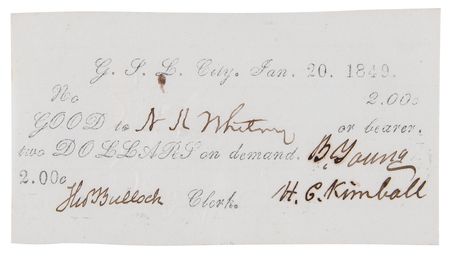 G. S. L. City. Jan. 20. 1849.
No 2.00c
GOOD to N K Whitney or bearer.
two DOLLARS on demand. B. Young
2.00c
Thos Bullock Clerk. H. C. Kimball